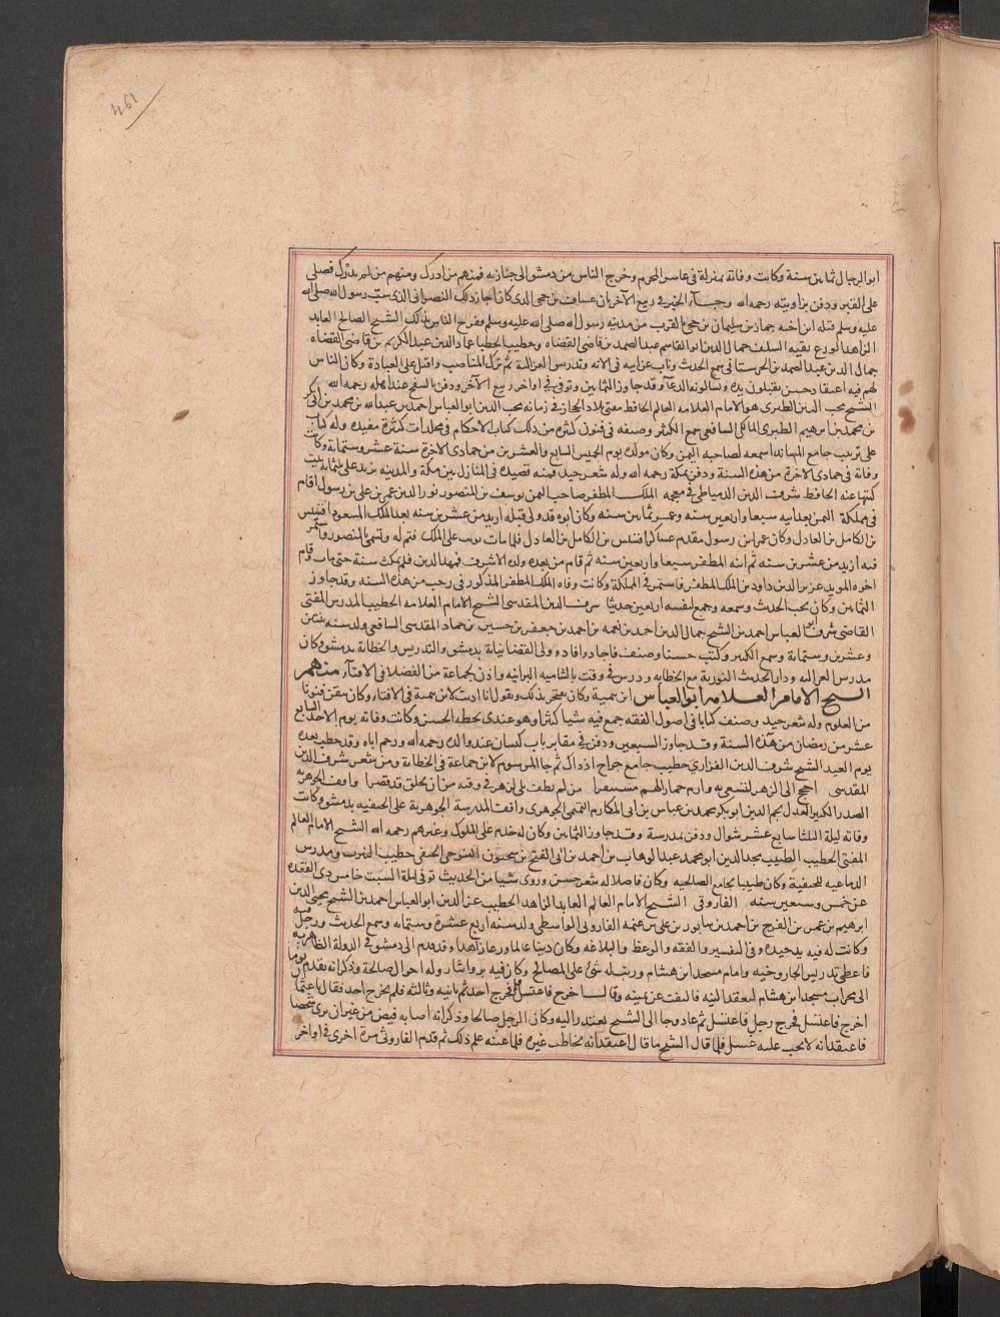 461
ابو الرجال ثمانين سنة وكانت وفاته بمنزله في عاشر المحرم وخرج الناس من دمشق الى جنازته فمنهم من ادرك ومنهم من لم يدرك فصلى
على القبر ودفن بزاويته رحمه الله وجاء الخبر في ربيع الآخر بان عساف بن حجي الذي كان اجار ذلك النصراني الذي سب رسول الله صلى الله
عليه وسلم قتله ابن اخيه جماز بن سليمان بن حجي بالقرب من مدينة رسول الله صلى الله عليه وسلم وفرح الناس بذلك الشيخ الصالح العابد
الزاهد الورع بقية السلف جمال الدين ابو القاسم عبد الصمد بن قاضي القضاه وخطيب الخطبا عماد الدين عبد الكريم بن قاضي القضاه
جمال الدين عبد الصمد بن الحرستاني سمع الحديث وناب عن ابيه في الامامة وتدريس الغزالية ثم ترك المناصب واقبل على العبادة وكان الناس
لهم فيه اعتقاد حسن يقبلون يده ويسألونه الدعآ وقد جاوز الثمانين وتوفي في اواخر ربيع الآخر ودفن بالسفح عند اهله رحمه الله
الشيخ محب الدين الطبري هو الامام العلامه العالم الحافظ مفتي بلاد الحجاز في زمانه محب الدين ابو العباس احمد بن عبد الله بن محمد بن ابي بكر
بن محمد بن ابرهيم الطبري المكي الشافعي سمع الكثير وصنف في فنون كثيرة من ذلك كتاب الاحكام في مجلدات كثيرة مفيدة وله كتاب
على ترتيب جامع المسانيد اسمعه لصاحب اليمن وكان مولده يوم الخميس السابع والعشرين من جمادى الاخرة سنة عشر وستمائة وكانت
وفاته في جمادى الاخرة من هذه السنة ودفن بمكة رحمه الله وله شعر جيد فمنه قصيدة في المنازل بين مكة والمدينه تزيد على ثلثمائة بيت
كتبها عنه الحافظ شرف الدين الدمياطي في معجمه الملك المظفر صاحب اليمن يوسف بن المنصور نور الدين عمر بن علي بن رسول اقام
في مملكة اليمن بعد ابيه سبعا واربعين سنه وعمر ثمانين سنه وكان ابوه قد ولي قبله ازيد من عشرين سنه بعد الملك المسعود اقسيس
بن الكامل بن العادل وكان عمر ابن رسول مقدم عساكر اقسيس بن الكامل بن العادل فلما مات وثب على الملك فتم له وتسمى بالمنصور واستمر
فيه ازيد من عشرين سنه ثم ابنه المظفر سبعا واربعين سنه ثم قام من بعده ولده الاشرف فمهد الدين فلم يمكث سنة حتى مات وقام
اخوه المويد عزبر الدين داود بن الملك المظفر فاستمر في المملكة وكانت وفاه الملك المظفر المذكور في رجب من هذه السنه وقد جاوز
الثمانين وكان يحب الحديث وسمعه وجمع لنفسه اربعين حديثا شرف الدين المقدسي الشيخ الامام العلامه الخطيب المدرس المفتي
القاضي شرف الدين ابو العباس احمد بن الشيخ جمال الدين احمد بن نعمه بن احمد بن جعفر بن حسين بن حماد المقدسي الشافعي ولد سنه ثنتين
وعشرين وستمائة وسمع الكثير وكتب حسنا وصنف فاجاد وافاد وولي القضا نيابة بدمشق والتدريس والخطابة بدمشق وكان
مدرس الغزاليه ودار الحديث النورية مع الخطابه ودرس في وقت بالشاميه البرانيه واذن لجماعة من الفضلا في الافتآء منهم
الشيخ الامام العلامه ابو العباس ابن تيمية وكان يفتخر بذلك ويقول انا اذنت لابن تيمية في الافتاء وكان يتقن فنونا
من العلوم وله شعر جيد وصنف كتابا في اصول الفقه جمع فيه شيا كثيرا وهو عندي بخطه الحسن وكانت وفاته يوم الاحد السابع
عشر من رمضان من هذه السنة وقد جاوز السبعين ودفن في مقابر باب كيسان عند والده رحمه الله ورحم اباه وقد خطب بعده
يوم العيد الشيخ شرف الدين الفزاري خطيب جامع جراح اذ ذاك ثم جا المرسوم لابن جماعة في الخطابة ومن شعر شرف الدين
المقدسي
الصدر الكبير العدل نجم الدين ابو بكر محمد بن عباس بن ابي المكارم التميمي الجوهري واقف المدرسة الجوهرية على الحنفيه بدمشق وكانت
وفاته ليلة الثلثا سابع عشر شوال ودفن بمدرسته وقد جاوز الثمانين وكان له خدم على الملوك وغيرهم رحمه الله الشيخ الامام العالم
المفتي الخطيب الطبيب مجد الدين ابو محمد عبد الوهاب بن احمد بن ابي الفتح بن سحنون التنوخي الحنفي خطيب النيرب ومدرس
الدماغيه للحنفية وكان طبيبا بجامع الصالحيه وكان فاضلا له شعر حسن وروى شيا من الحديث توفي ليلة السبت خامس ذي القعده
عن خمس وسبعين سنه الفاروثي الشيخ الامام العالم العابد الزاهد الخطيب عز الدين ابو العباس احمد بن الشيخ محيي الدين
ابرهيم بن عمر بن الفرج بن احمد بن سابور بن علي بن غنيمه الفاروثي الواسطي ولد سنه اربع عشرة وستمائه وسمع الحديث ورحل فيه
وكانت له فيه يد جيده وفي التفسير والفقه والوعظ والبلاغه وكان دينا عالما ورعا زاهدا وقدم الى دمشق في الدولة الظاهريه
فاعطي تدريس الجاروخيه وامام مسجد ابن هشام ورتب له شئ على المصالح وكان فيه بر وايثار وله احوال صالحة وذكر انه تقدم يوما
الى محراب مسجد ابن هشام
اخرج فاغتسل فخرج رجل فاغتسل ثم عاد وجا الى الشيخ يعتذر اليه وكان الرجل صالحا وذكر انه اصابه فيض من غير ان يرى شخصا
فاعتقد انه لا يجب عليه غسل فلما قال الشيخ ما قال اعتقد انه يخاطب غيره فلما عينه علم ذلك ثم قدم الفاروثي مرة اخرى في اواخر